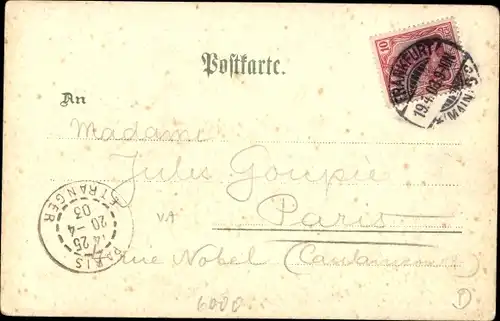 10
FRANKFURT
19.4.03
(MAIN)
Postkarte.
An
Madame
Jules Goupie
VA
Paris
PARIS ETRANGER
14 25
20 - 4
03
7 rue Nobel (Caulaincourt)
6000
D